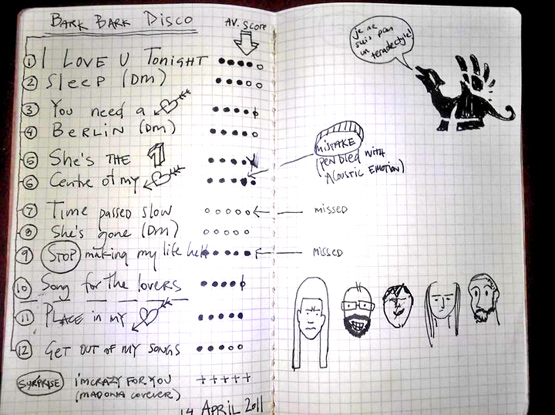 BARK BARK DISCO
AV. SCORE
1 I LOVE U TONIGHT
2 SLEEP (Dm)
3 You need a
4 BERLIN (Dm)
5 She's THE 1
6 Centre of my
7 Time passed slow
8 She's gone (Dm)
9 STOP making my life hell
10 Song for the lovers
11 PLACE in my
12 GET OUT OF MY SONGS
SURPRISE I'M CRAZY FOR YOU
(MADONA COVEVER)
14 APRIL 2011
je ne
suis pas
un
MISTAKE
(PEN BLED WITH
ACOUSTIC EMOTION)
MISSED
MISSED